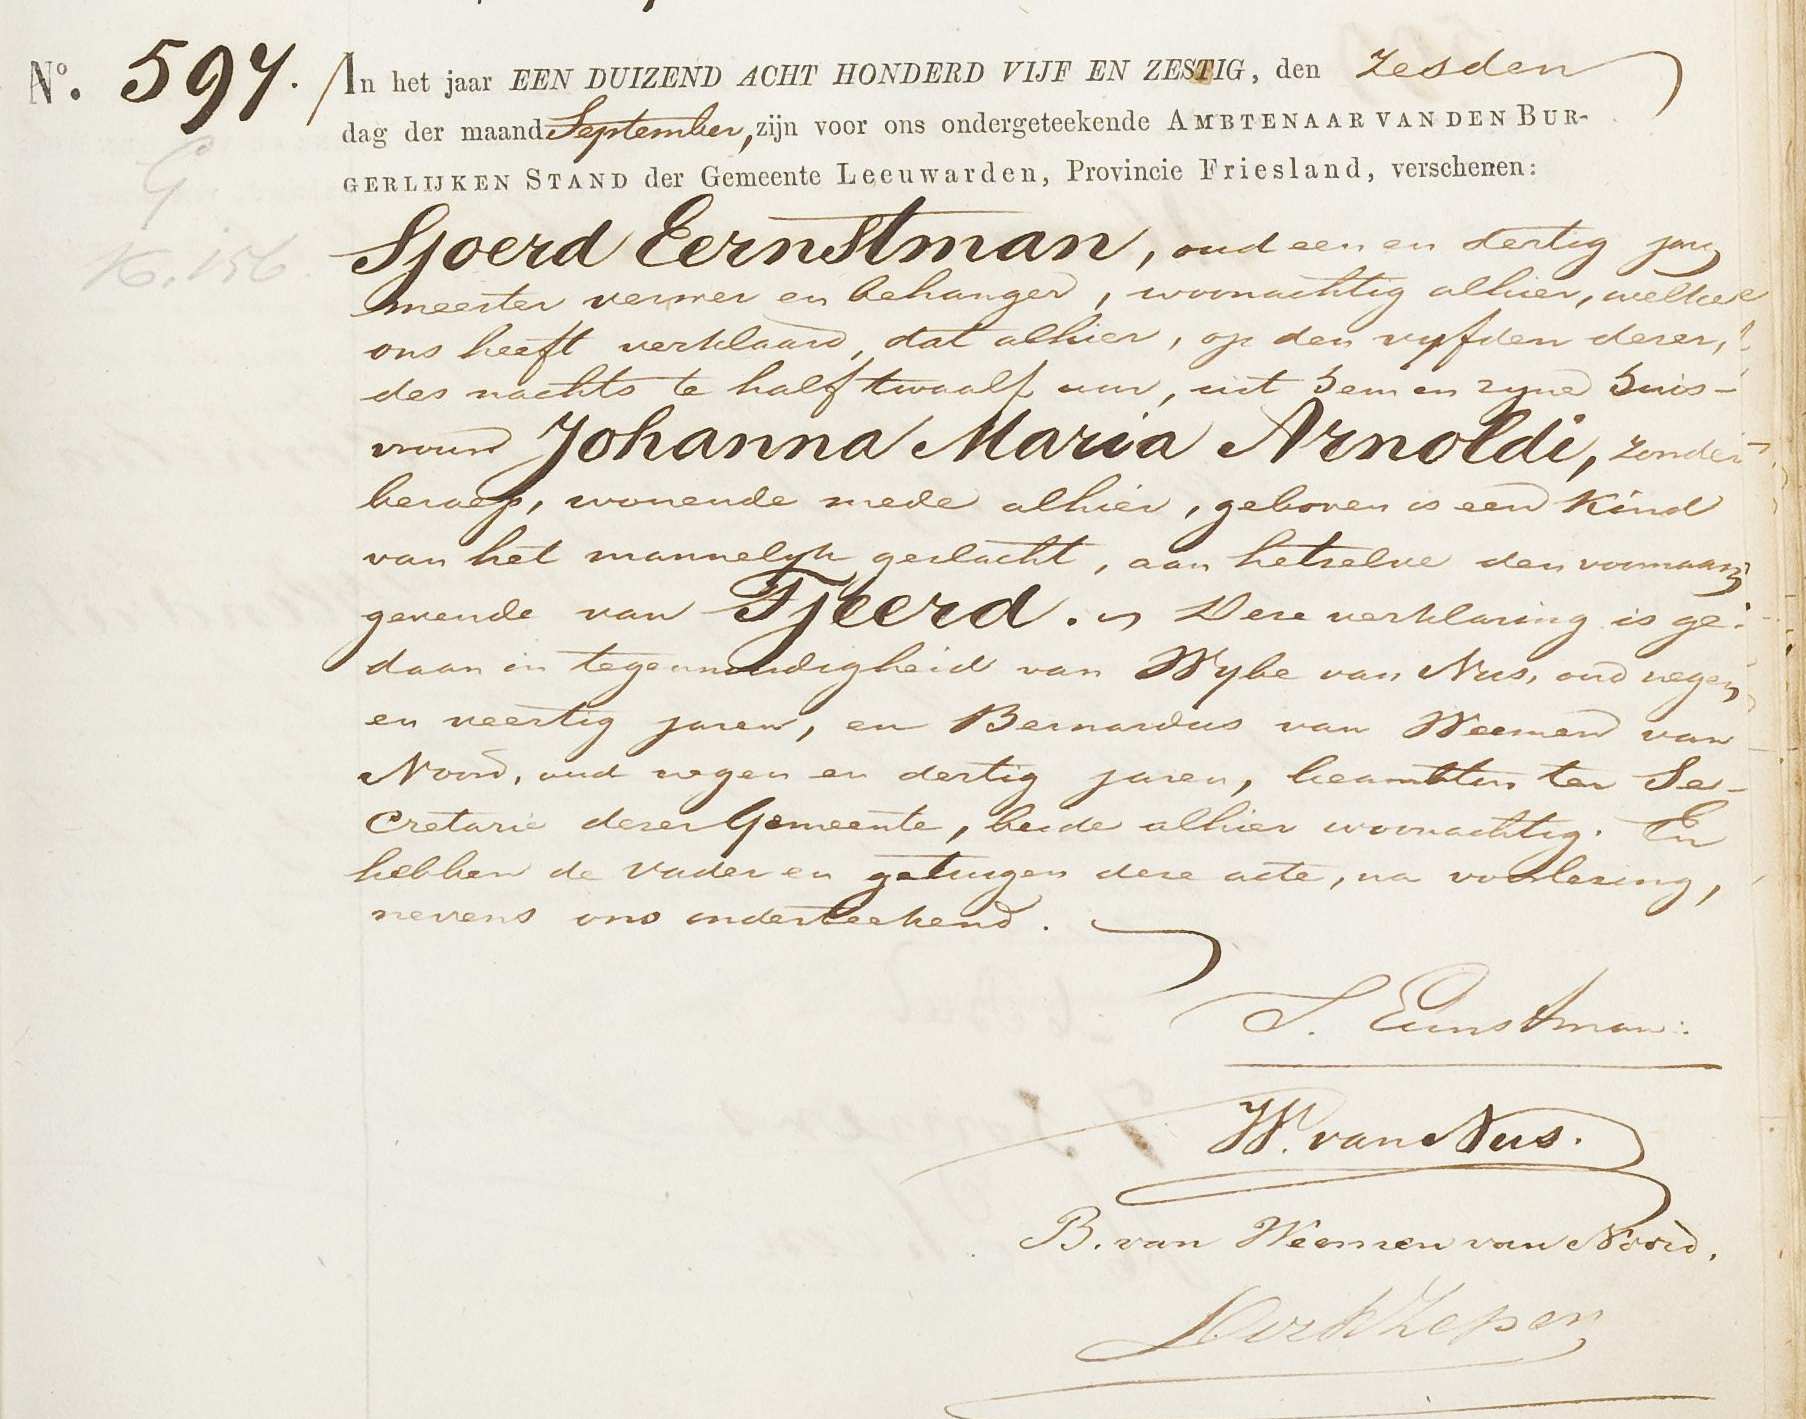 No. 597. In het jaar EEN DUIZEND ACHT HONDERD VIJF EN ZESTIG, den zesden
dag der maand September, zijn voor ons ondergeteekende AMBTENAAR VAN DEN BUR-
GERLIJKEN STAND der Gemeente Leeuwarden, Provincie Friesland, verschenen:
G
K. 156
Sjoerd Eernstman, oud een en dertig jaren
meester verwer en behanger, woonachtig alhier, welke
ons heeft verklaard, dat alhier, op den vyfden dezer,
des nachts te half twaalf uur, uit hem en zyne huis-
vrouw Johanna Maria Arnoldi, zonder
beroep, wonende mede alhier, geboren is een kind
van het mannelyk geslacht, aan hetzelve den voornaam
gevende van Tjeerd. Deze verklaring is ge-
daan in tegenwoordigheid van Wybe van Nus, oud negen
en veertig jaren, en Bernardus van Weemen van
Noord, oud negen en dertig jaren, beambten ter Se-
cretarie dezer Gemeente, beide alhier woonachtig. En
hebben de vader en getuigen deze acte, na voorlezing,
nevens ons onderteekend.
S. Eernstman.
W. van Nus.
B. van Weemen van Noord.
Dirk Zeper